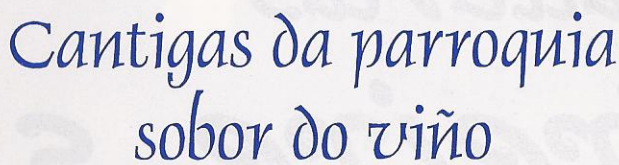 Cantigas da parroquia
sobor do viño